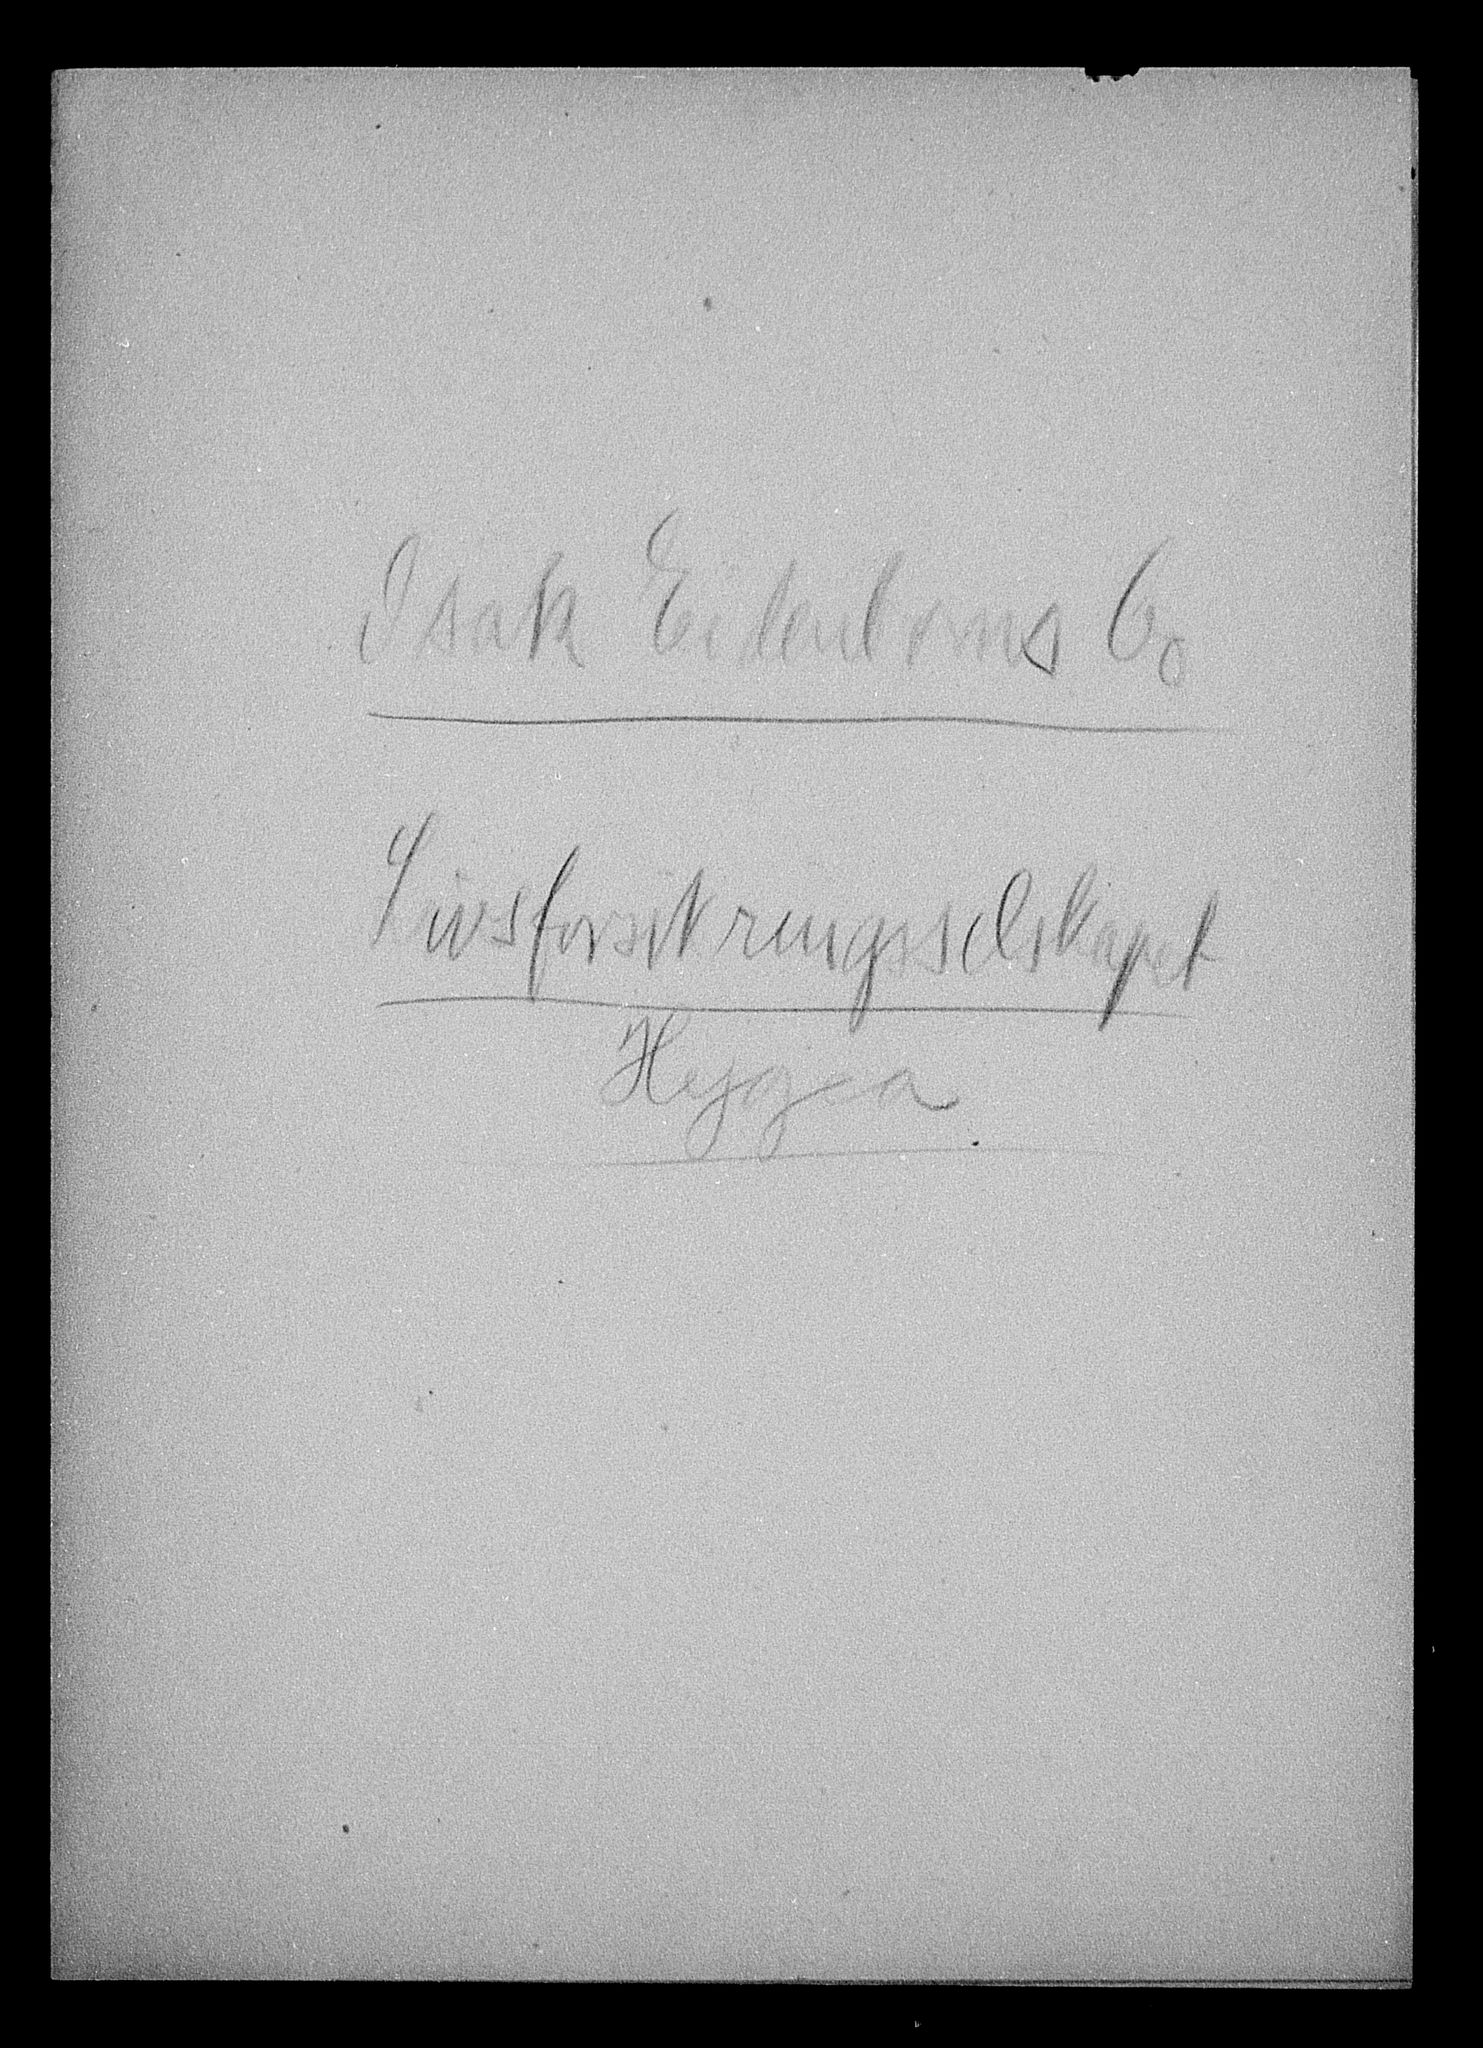 Isak Eidenboms Bo
Livsforsikringsselskapet
Hygea